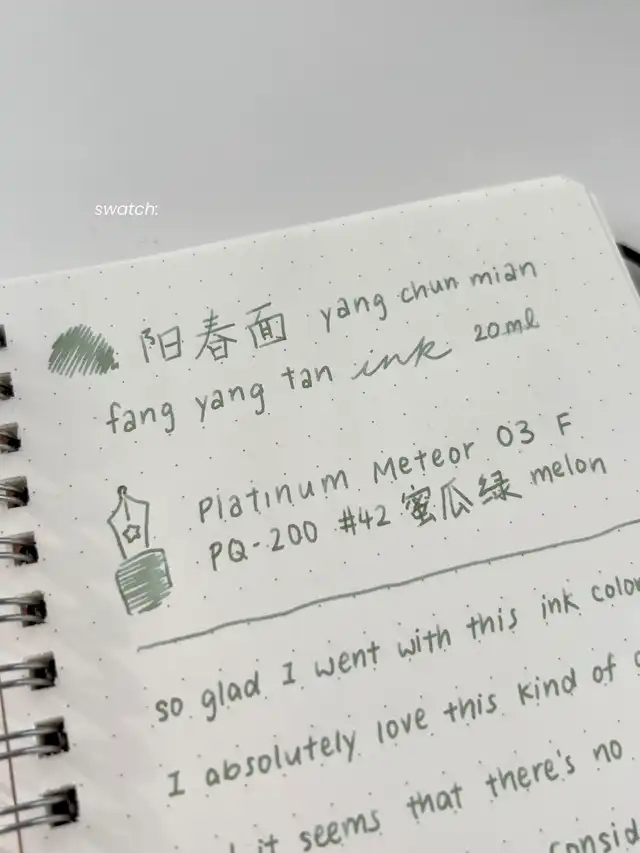 swatch:
阳春面 yang chun mian
fang yang tan ink 20ml
Platinum Meteor 03 F
PQ-200 #42 蜜瓜绿 melon
so glad I went with this ink
I absolutely love this kind of
it seems that there's no